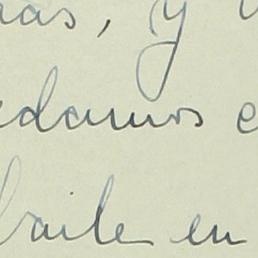 as, y
damos e
baile en